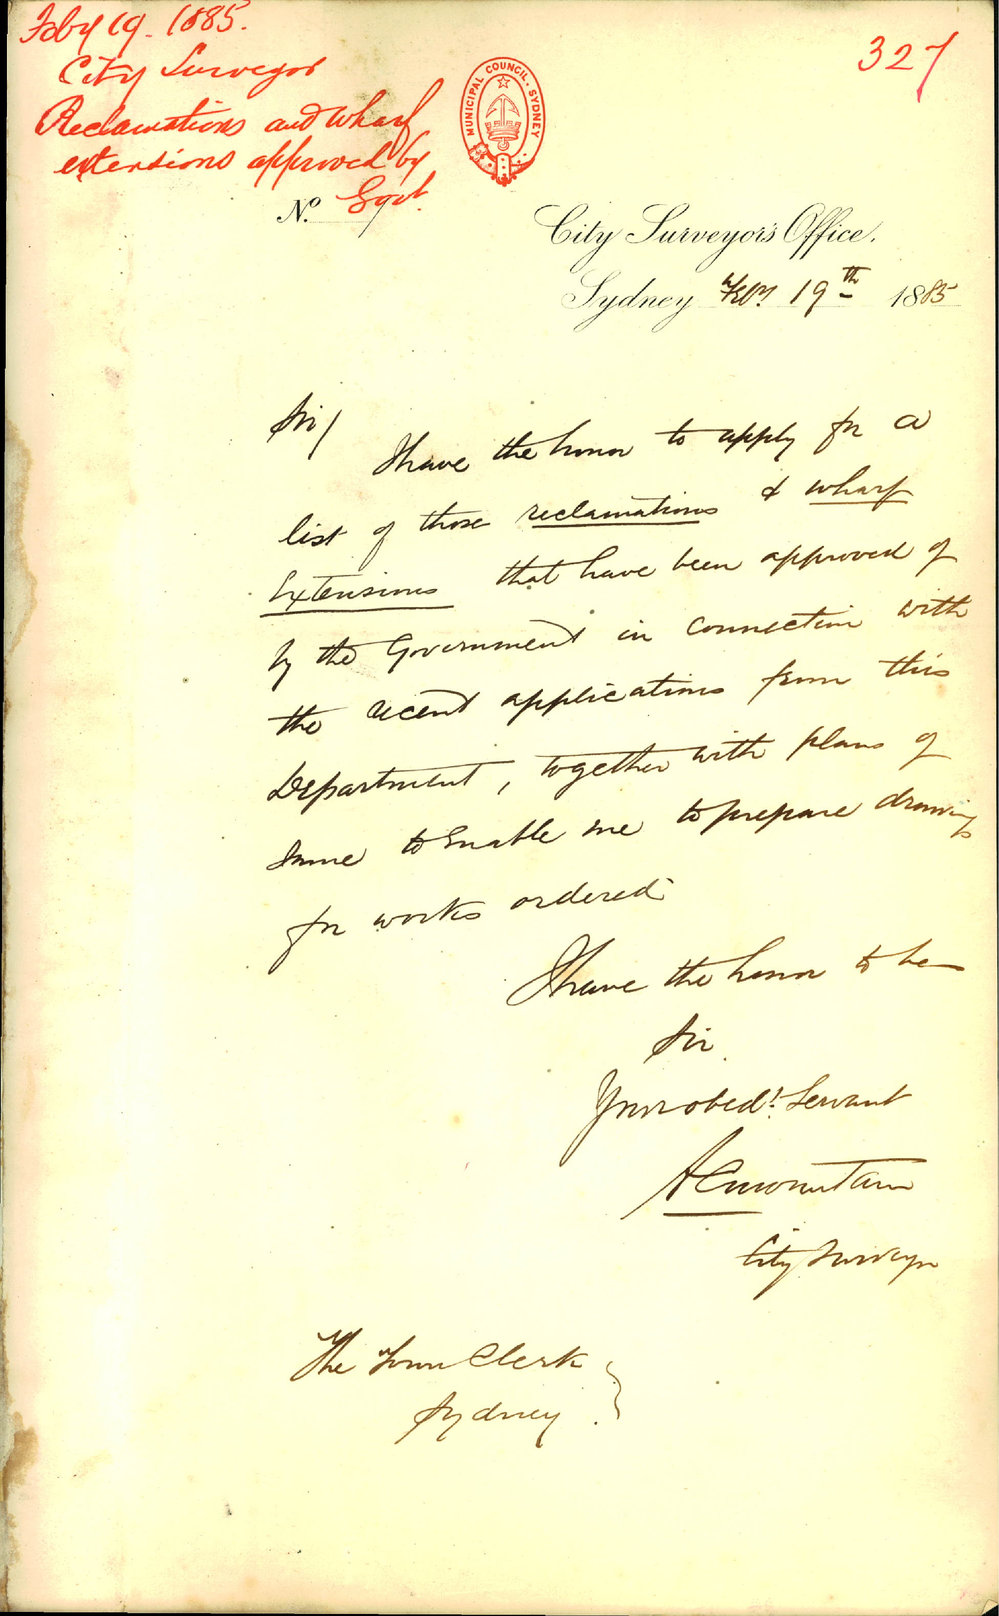 Feby 19. 1885.
City Surveyor
Reclamations and Wharf
extensions approved by
Govt.
327
MUNICIPAL COUNCIL. SYDNEY
No.
City Surveyor's Office.
Sydney Feby 19th 1885
Sir/
I have the honor to apply for a
list of those reclamations & wharf
Extensions that have been approved of
by the Government in connection with
the recent applications from this
Department, together with plans of
same to Enable me to prepare drawings
for works ordered
I have the honor to be
Sir
Your obedt. Servant
City Surveyor
The Town Clerk
Sydney